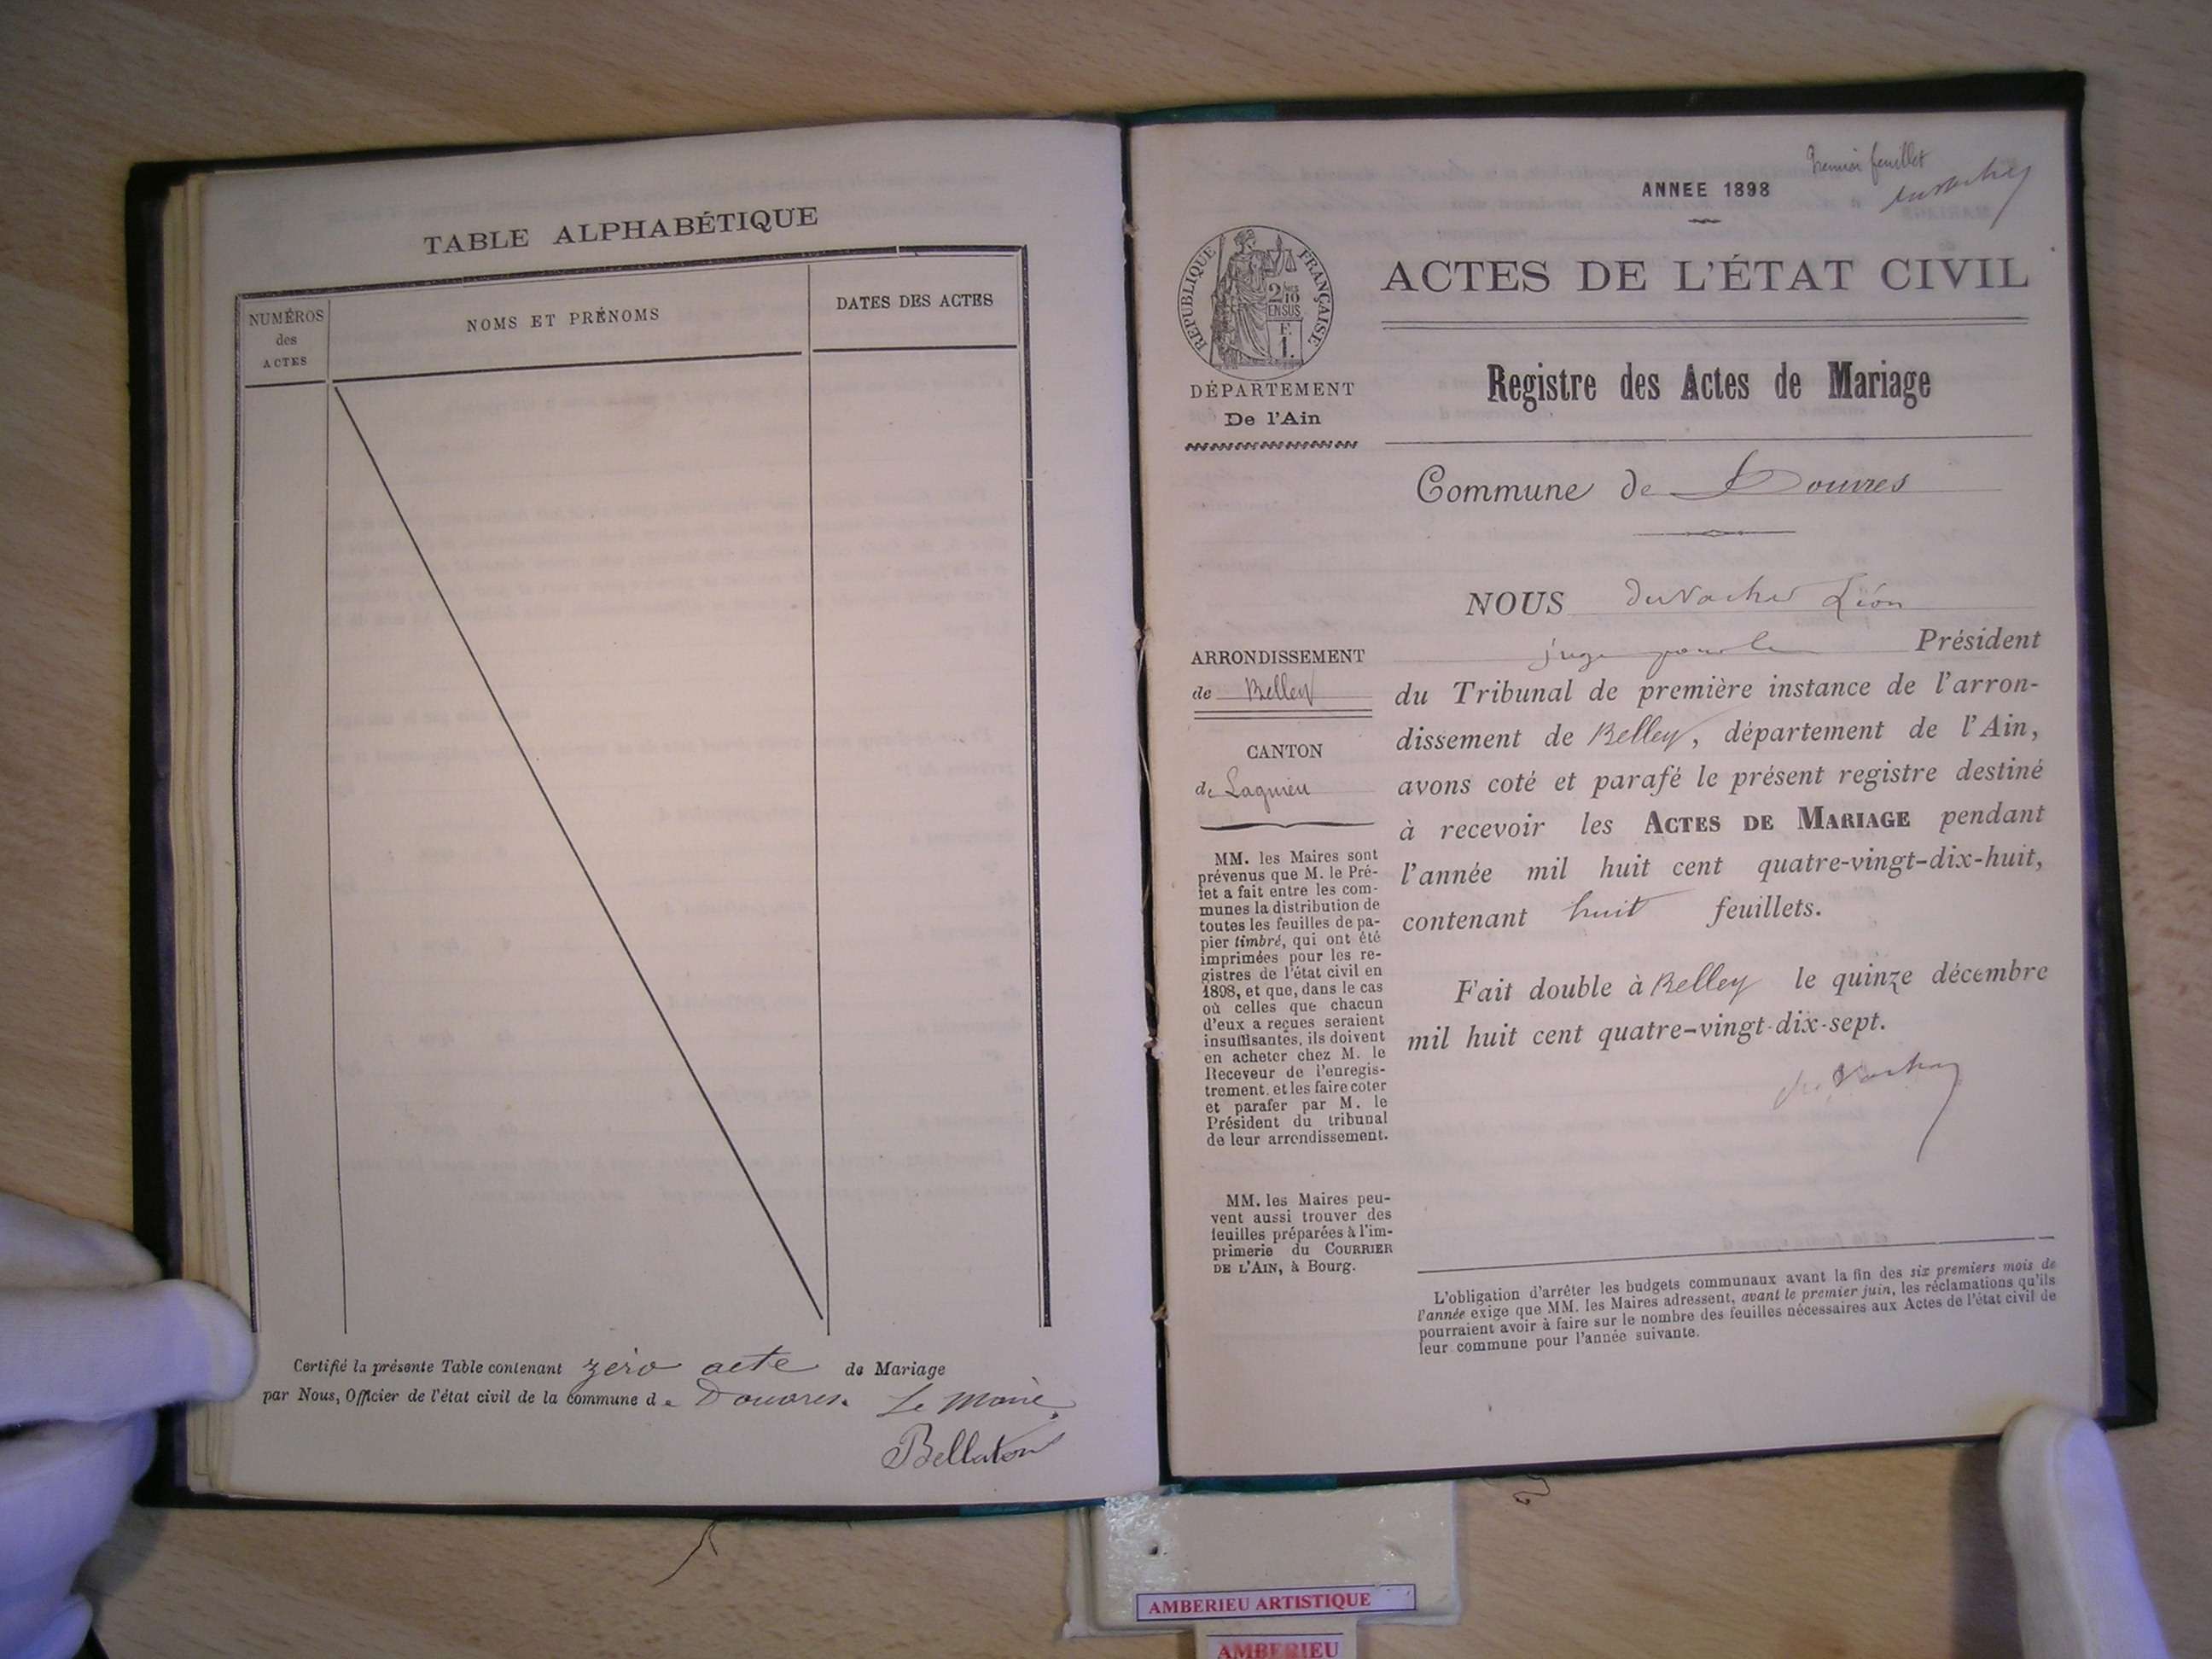 TABLE ALPHABÉTIQUE
NUMÉROS
des
ACTES
NOMS ET PRÉNOMS
DATES DES ACTES
Certifié la présente Table contenant zéro acte de Mariage
par Nous, Officier de l'état civil de la commune de Douvres. Le Maire,
Bellaton
Premier feuillet
ANNEE 1898
RÉPUBLIQUE FRANÇAISE
2/10
EN SUS
F.
1.
ACTES DE L'ÉTAT CIVIL
Registre des Actes de Mariage
DÉPARTEMENT
De l'Ain
Commune de Douvres
ARRONDISSEMENT
de Belley
CANTON
de Lagnieu
MM. les Maires sont
prévenus que M. le Pré-
fet a fait entre les com-
munes la distribution de
toutes les feuilles de pa-
pier timbré, qui ont été
imprimées pour les re-
gistres de l'état civil en
1898, et que, dans le cas
où celles que chacun
d'eux a reçues seraient
insuffisantes, ils doivent
en acheter chez M. le
Receveur de l'enregis-
trement, et les faire coter
et parafer par M. le
Président du tribunal
de leur arrondissement.
MM. les Maires peu-
vent aussi trouver des
feuilles préparées à l'im-
primerie du COURRIER
DE L'AIN, à Bourg.
NOUS Léon
juge pour le Président
du Tribunal de première instance de l'arron-
dissement de Belley, département de l'Ain,
avons coté et parafé le présent registre destiné
à recevoir les ACTES DE MARIAGE pendant
l'année mil huit cent quatre-vingt-dix-huit,
contenant huit feuillets.
Fait double à Belley le quinze décembre
mil huit cent quatre-vingt-dix-sept.
L'obligation d'arrêter les budgets communaux avant la fin des six premiers mois de
l'année exige que MM. les Maires adressent, avant le premier juin, les réclamations qu'ils
pourraient avoir à faire sur le nombre des feuilles nécessaires aux Actes de l'état civil de
leur commune pour l'année suivante.
AMBERIEU ARTISTIQUE
AMBERIEU